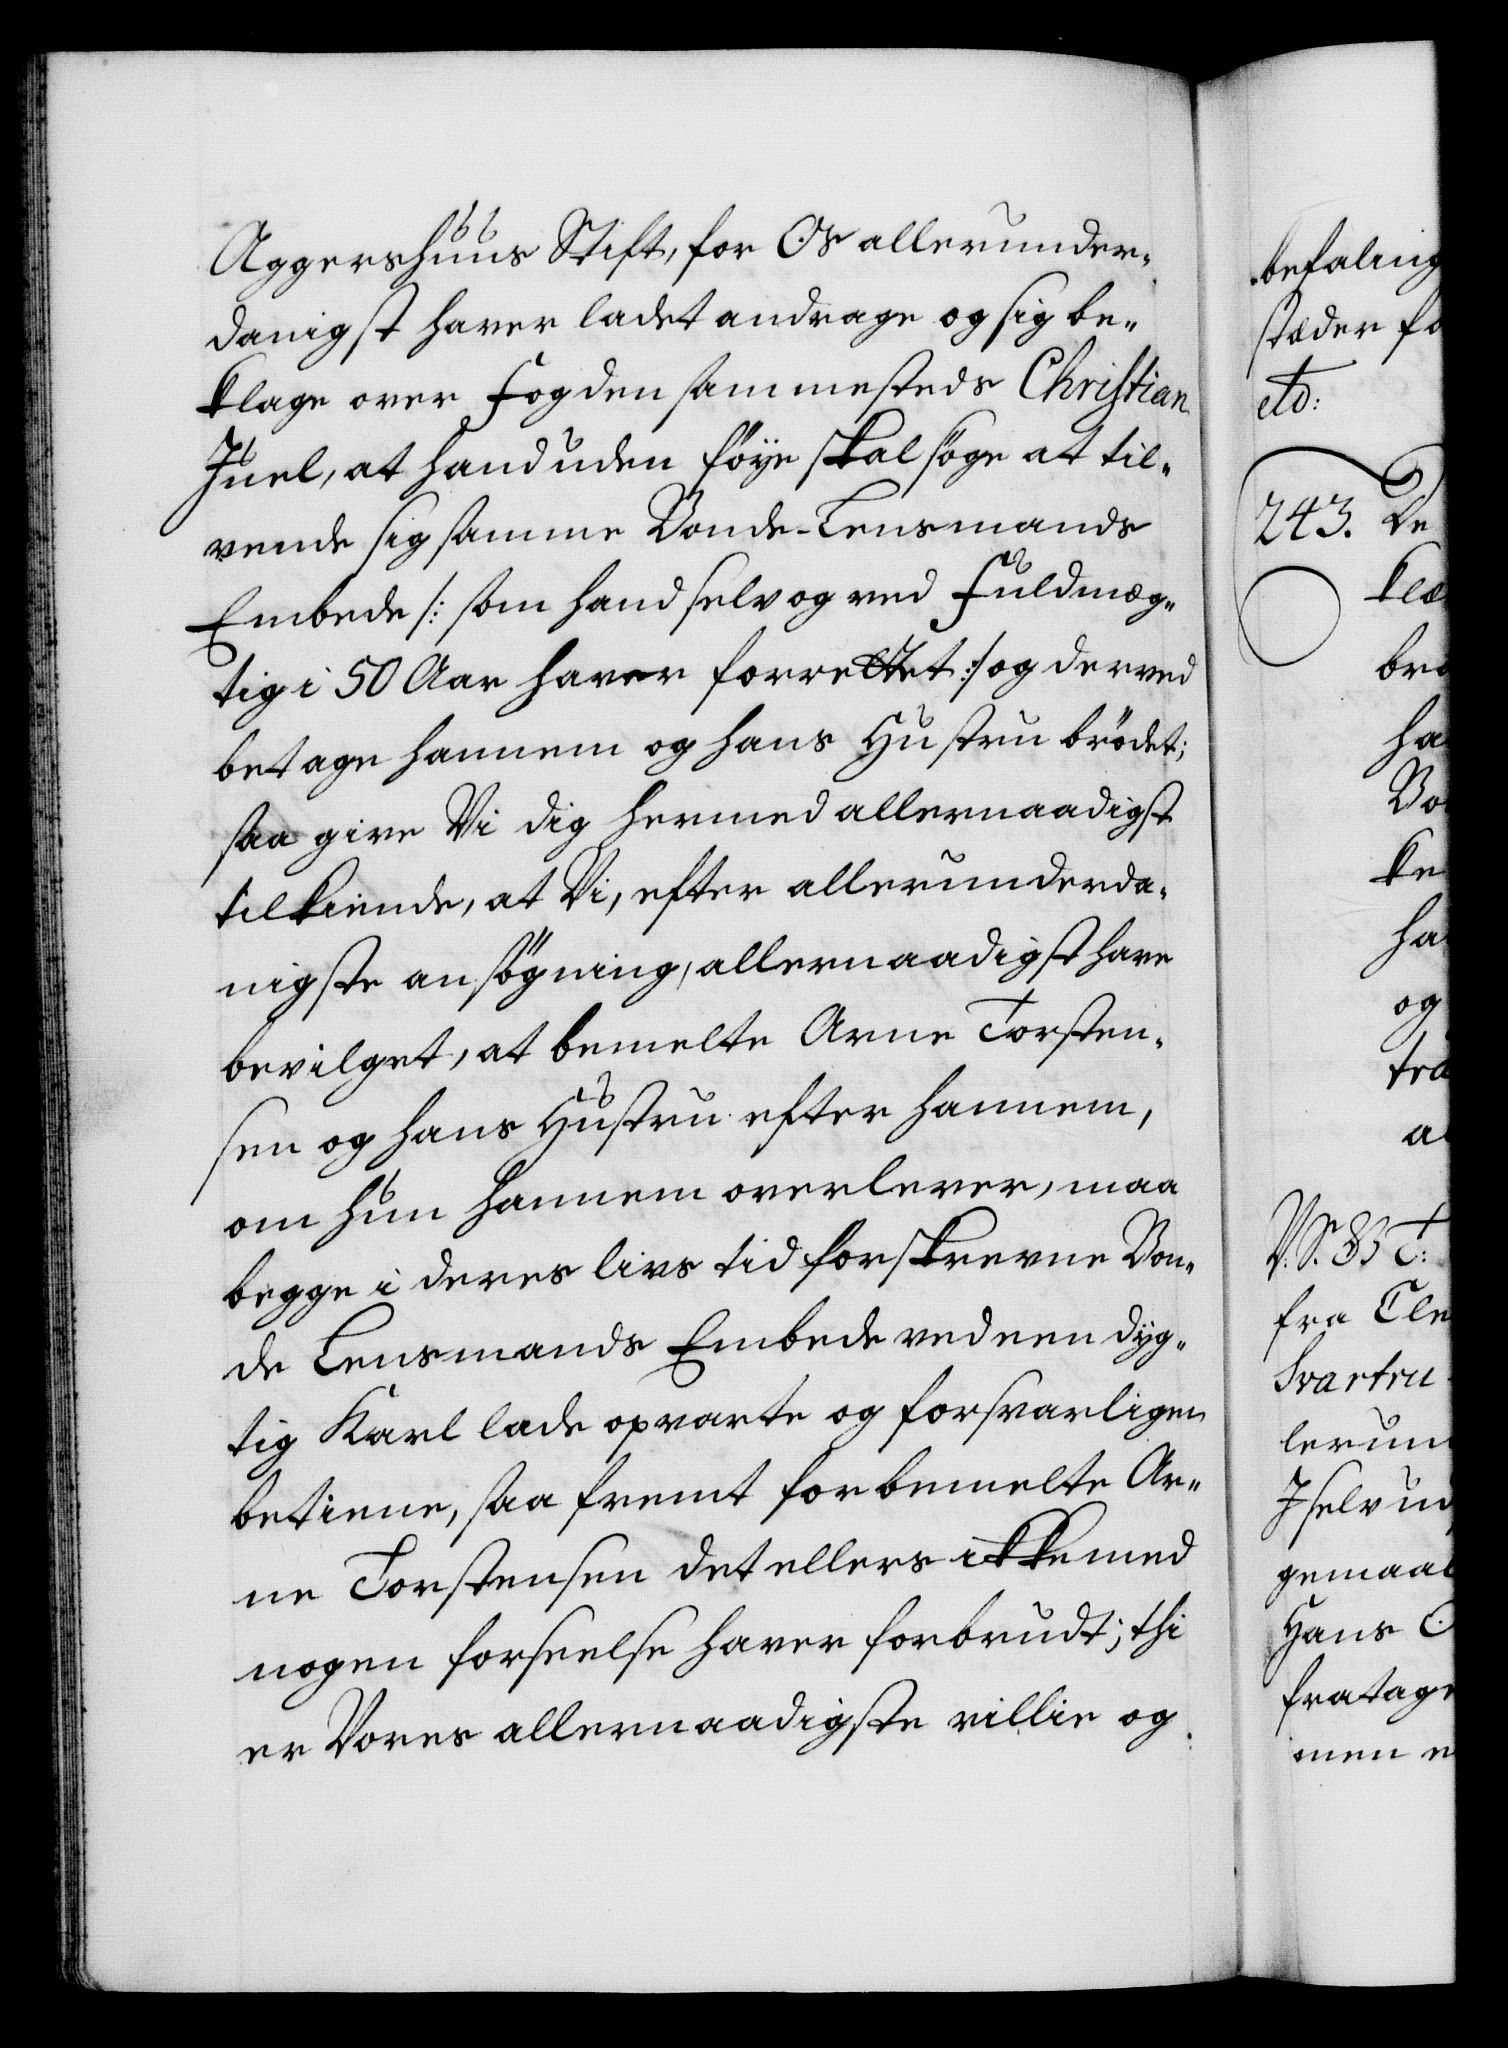 Aggershuus Stift, for Os allerunder„
danigst haver ladet andrage og sig be„
klage over Fogden sammesteds Christian
Juel, at hand uden föye skal söge at til„
vende sig samme Bonde-Lensmands
Embede /: som hand selv og ved Fuldmæg„
tig i 50 Aar haver forrettet :/ og derved
betage hannem og hans Hustru brödet;
saa give Vi dig hermed allernaadigst
tilkiende, at Vi, efter allerunderda„
nigste ansögning, allernaadigst have
bevilget, at bemelte Arne Torsten„
sen og hans Hustru efter hannem,
om hun hannem overlever, maa
begge i deres livs tid forskrevne Bon„
de Lensmands Embede ved een dyg„
tig Karl lade opvarte og forsvarligen
betiene, saa fremt forbemelte Ar„
ne Torstensen det ellers ikke med
nogen forseelse haver forbrudt; thi
er Vores allernaadigste villie og
befaling
stæder fo
etc:
243. De
klæ
bro
ha
Bo
ke
ha
og
tra
a
V. S. B T:
fra Cle
Svartru
lerun
J selv ud
gemaal
Hans O
fratage
men e